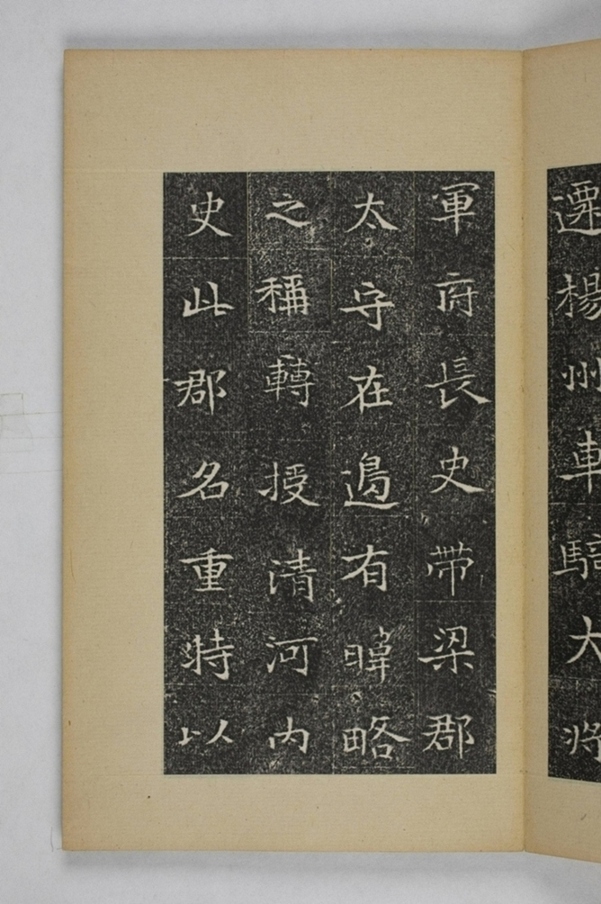 遷楊州車騎大將
軍府長史帶梁郡
太守在邊有暐略
之稱轉授清河内
史此郡名重特以